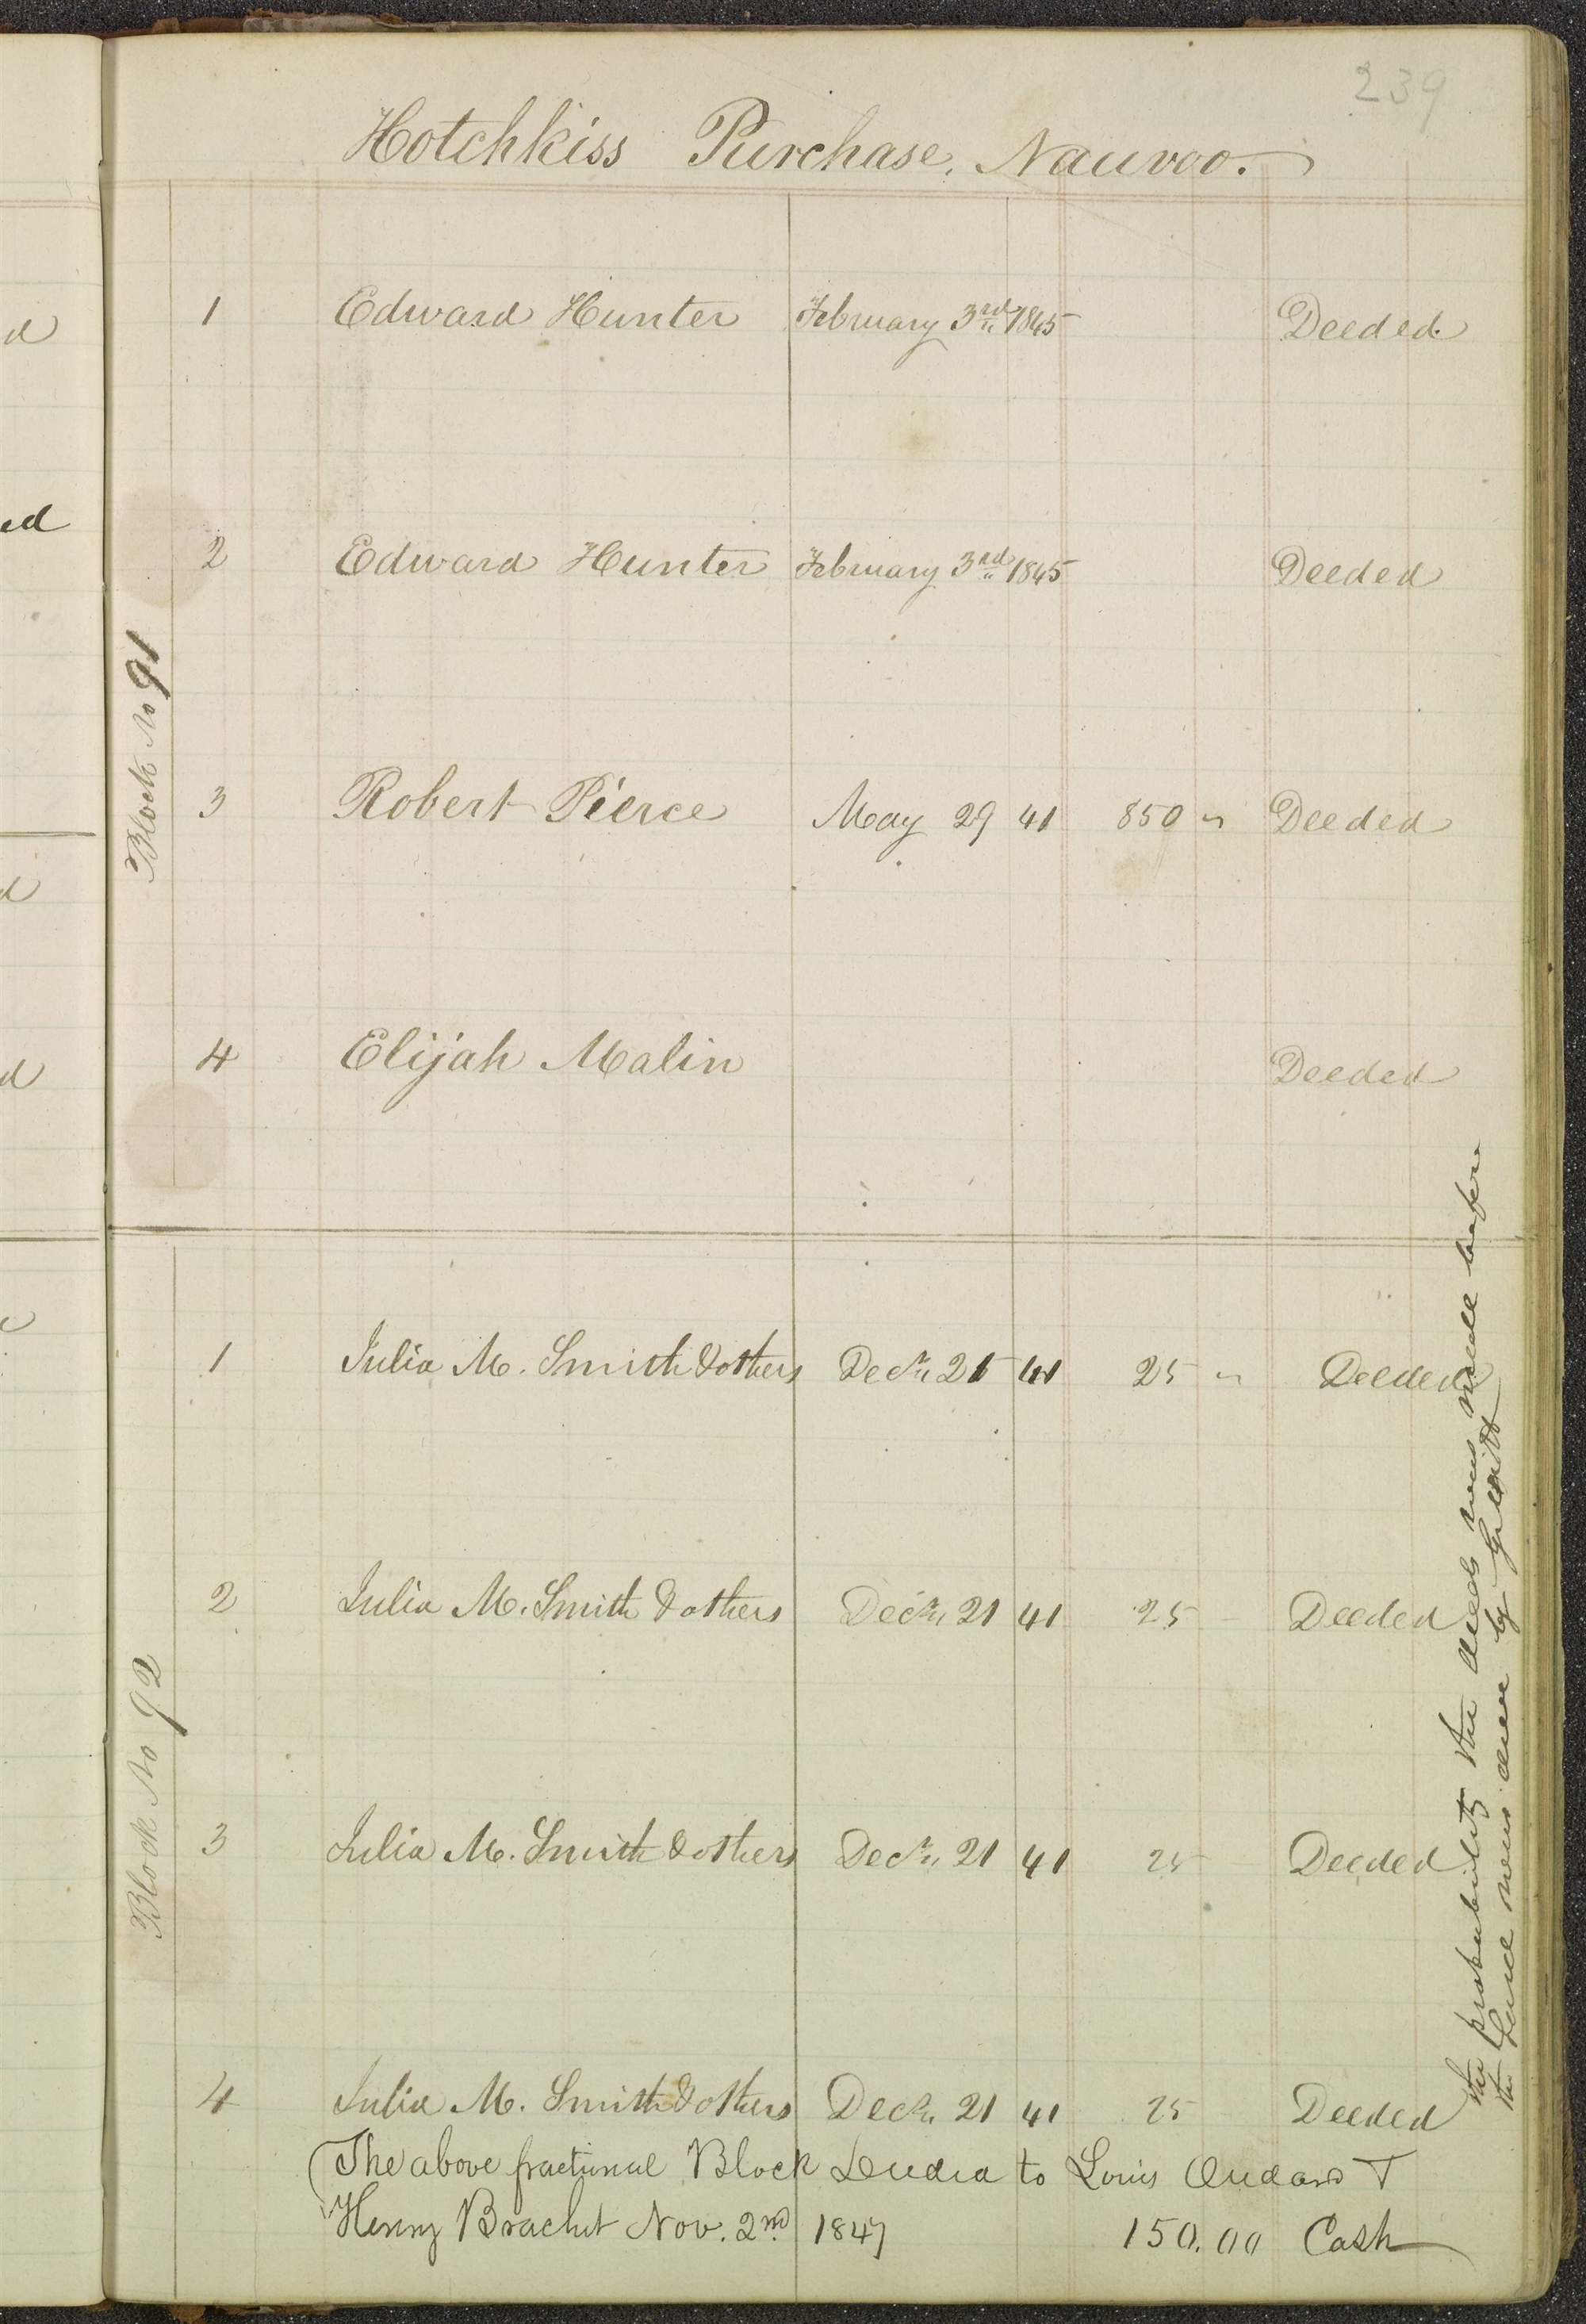 239
Hotchkiss Purchase, Nauvoo.
Block No 91
1 Edward Hunter February 3rd 1845 Deeded.
2 Edward Hunter February 3rd 1845 Deeded
3 Robert Pierce May 29 41 850 " Deeded
4 Elijah Malin Deeded
Block No 92
1 Julia M. Smith & others Decr. 21 41 25 " Deeded
2 Julia M. Smith & others Decr. 21 41 25 - Deeded
3 Julia M. Smith & others Decr. 21 41 25 - Deeded
4 Julia M. Smith & others Decr. 21 41 25 Deeded
(The above fractional Block Deeded to Louis
Henry Brachet Nov. 2nd 1847 150.00 Cash
the probability the deeds was made before
the was done by
d
ed
d
d